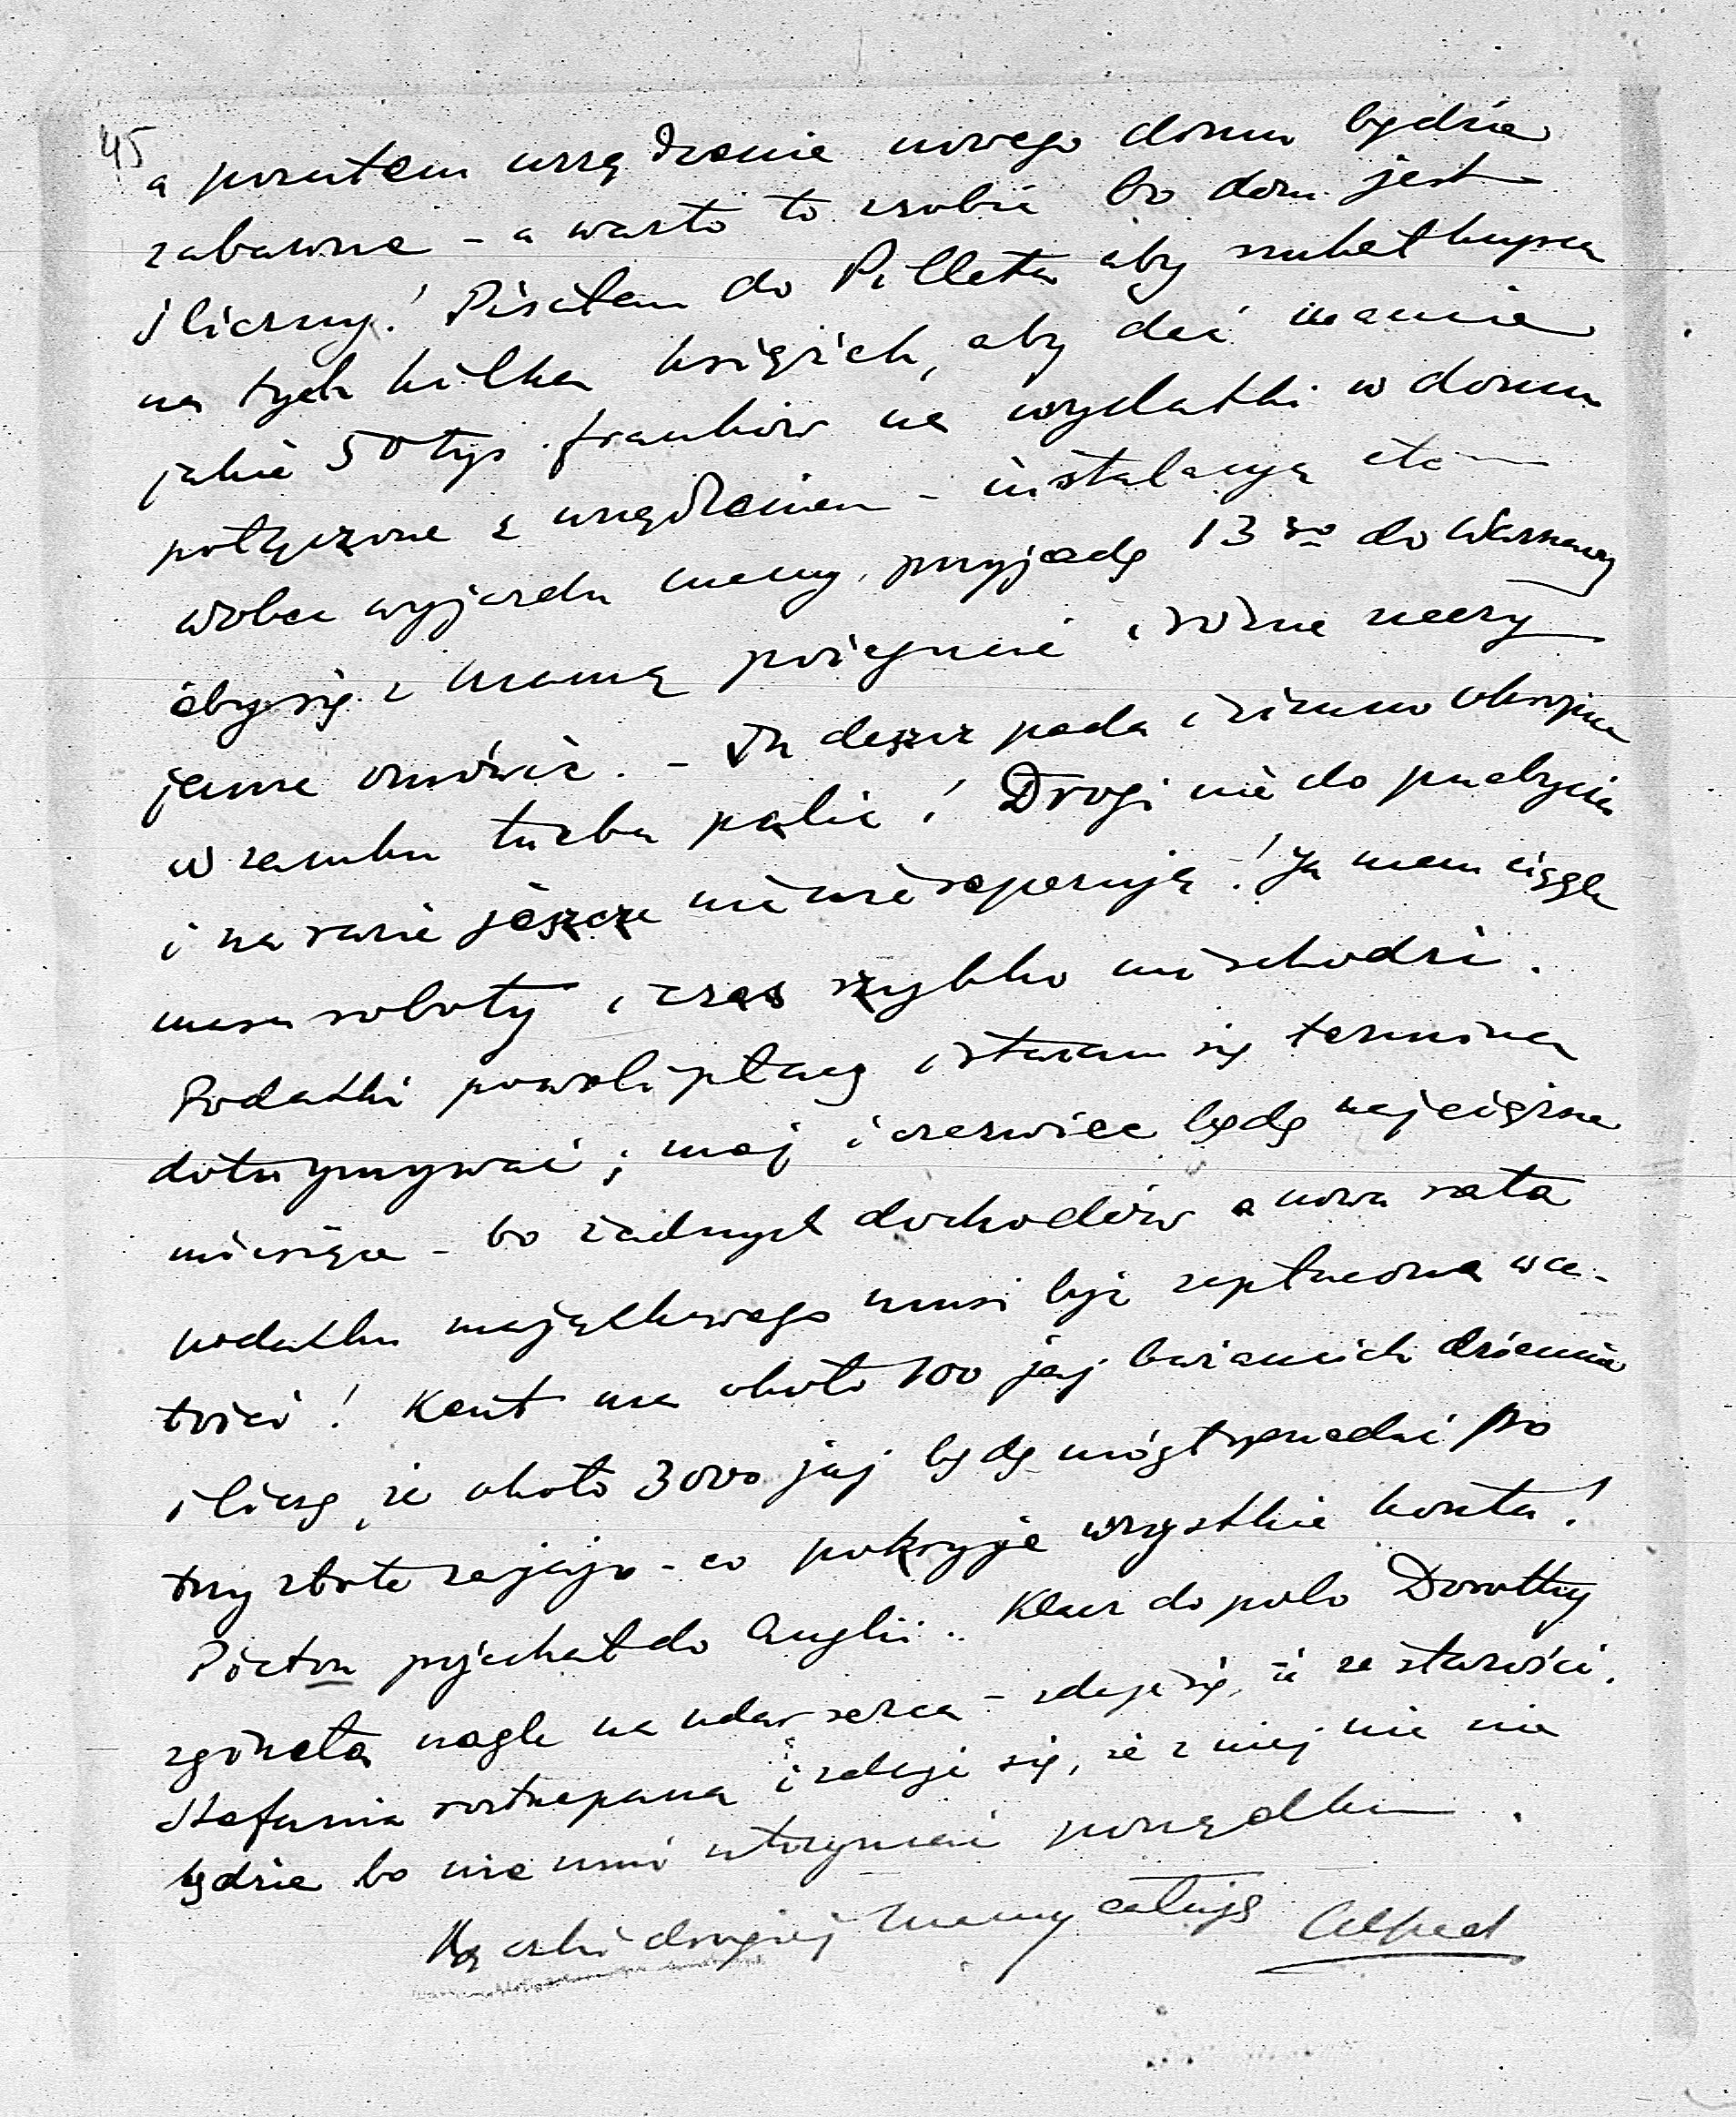 45
a pozatem urządzenie nowego domu będzie
zabawne - a warto to zrobić bo dom jest
śliczny! Pisałem do Pilleta aby szukał kupca
na tych kilka książek, aby dać mamie
jakie 50 tys franków na wydatki w domu
połączone z urządzeniem - instalacyą etc
wobec wyjazdu mamy, przyjadę 13go do Warszawy
aby się z mamą pożegnać i różne rzeczy
jeszcze omówić. - Tu deszcz pada i zimno okropne
w zamku trzeba palić! Drogi nie do przebycia
i na razie jeszcze nie nie reperuję! Ja mam ciągle
masę roboty i czas szybko mi schodzi.
Podatki powoli płacę i staram się termina
dotrzymywać; maj i czerwiec będą najcięższe
miesiące - bo żadnych dochodów a nowa rata
podatku majątkowego musi być zapłacona w ca-
łości! Kent ma około 100 jaj bażancich dziennie
i liczę, że około 3000 jaj będę mógł sprzedać po
trzy złote za jajo - co pokryje wszystkie koszta!
Picton pojechał do Anglii.. Klacz do polo Dorothy
zginęła nagle na udar serca - zdaje się, że ze starości.
Stefania roztrzepana i zdaje się, że z niej nic nie
będzie bo nie umi utrzymać porządku.
Rączki drogiej Mamy całuję Alfred